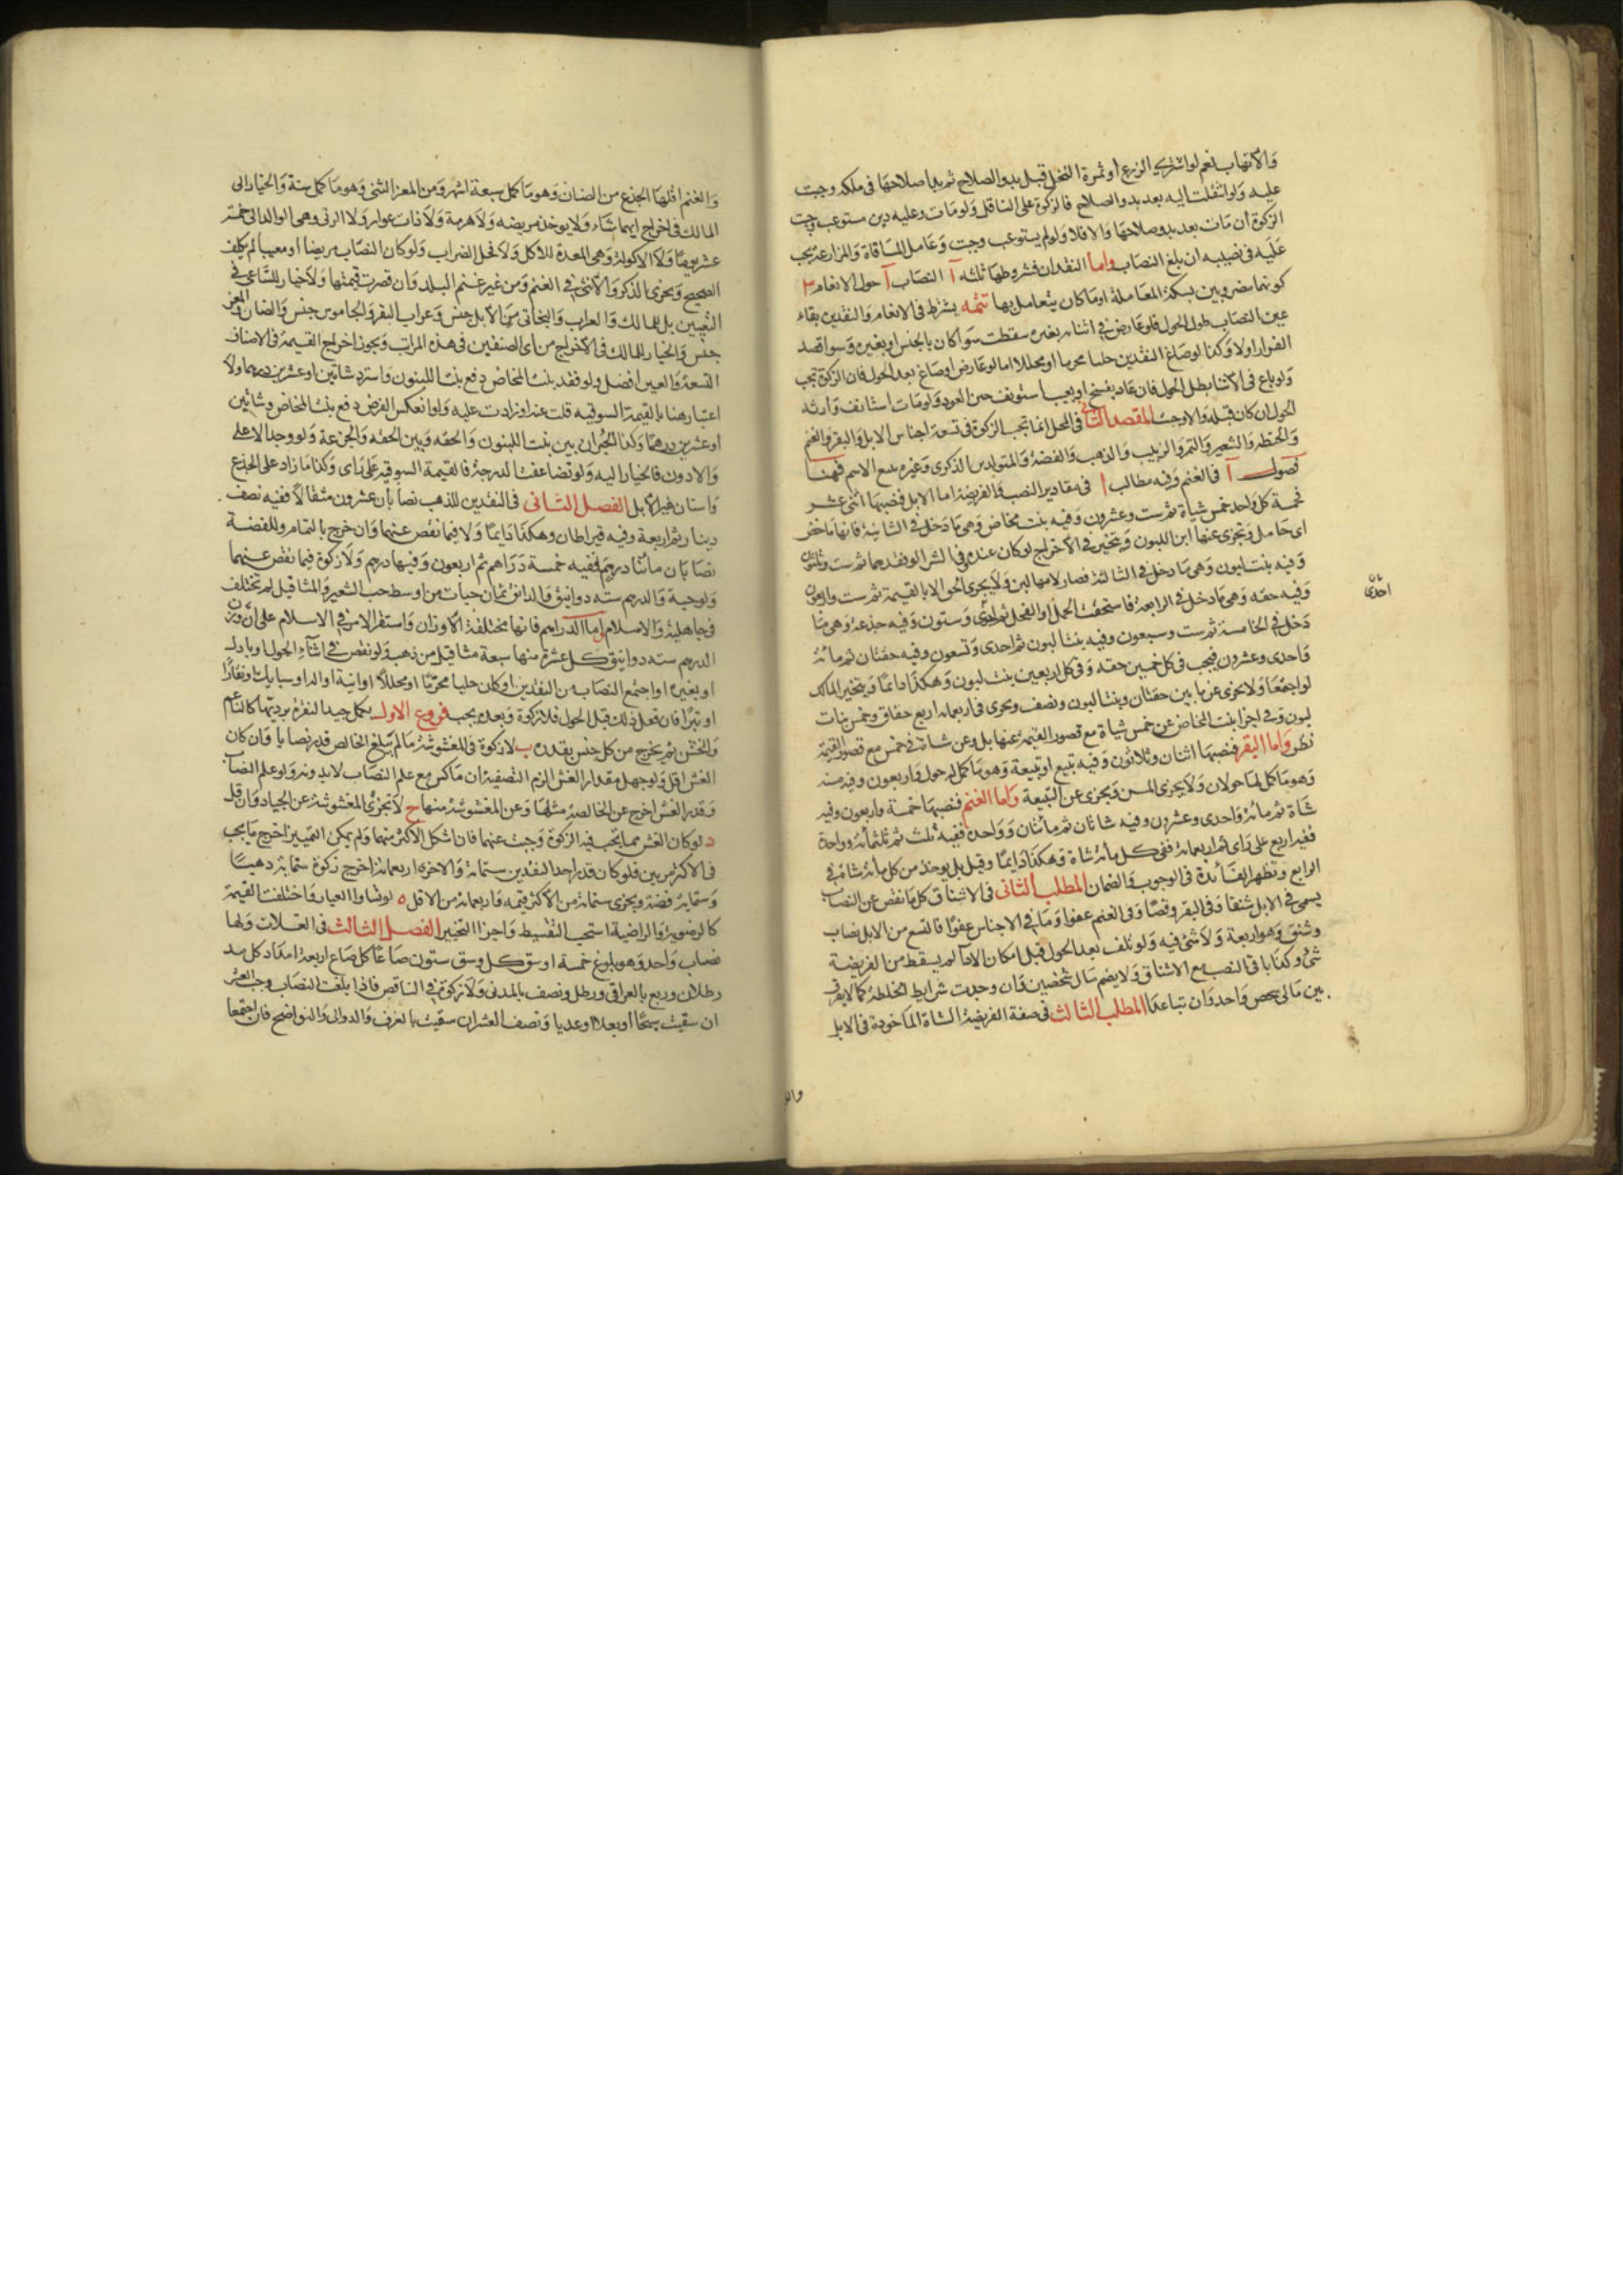 والاتهاب نعم لو اشترى الزرع او ثمرة النخل قبل بدو الصلاح ثم بدا صلاحها فى ملكه وجبت
عليه ولو انتقلت اليه بعد بدو الصلاح فالزكوة على الناقل ولو مات وعليه دين مستوعب وجبت
الزكوة ان مات بعد بدو صلاحها والا فلا ولو لم يستوعب وجبت وعامل المساقاة والمزارعة يجب
عليه فى نصيبه ان بلغ النصاب واما النقدان فشروطها ثلثه آ النصاب آ حول الانعام ٣
كونهما مضروبين بسكة المعاملة او ما كان يتعامل بها تتمه يشترط فى الانعام والنقدين بقاء
عين النصاب طول الحول فلو عارض فى اثنائه بغيره سقطت سوا كان بالجنس او بغيره وسوا قصد
الفرار اولا وكذا لو صاغ النقدين حليا محرما او محللا اما لو عارض او صاغ بعد الحول فان الزكوة تجب
ولو باع فى الاثنا بطل الحول فان عاد بفسخ او بعيب استونف حين العود ولو مات استانف وارثه
الحول ان كان قبله والا وجبت المقصد الثانى فى المحل انما تجب الزكوة فى تسعة اجناس الابل والبقر والغنم
والحنطه والشعير والتمر والزبيب والذهب والفضة والمتولد بين الذكوى وغيره يتبع الاسم فهنا
فصول آ فى الغنم وفيه مطالب ا فى مقادير النصب والفريضة اما الابل فنصبها اثنى عشر
خمسة كل واحد خمس شياة ثم ست وعشرون وفيه بنت مخاض وهى ما دخل فى الثانية فامها ماخض
اى حامل وتجزى عنها ابن اللبون ويتخير فى الاخراج لو كان عنده وفى الشرا لو فقدهما ثم ست وثلثون
وفيه بنت لبون وهى ما دخل فى الثالثة فصار لامها لبن ولا يجزى الحق الا بالقيمة ثم ست واربعون
وفيه حقه وهى ما دخل فى الرابعة فاستحقت الحمل او الفحل ثم احدى وستون وفيه جذعة وهى ما
احدى
دخل فى الخامسة ثم ست وسبعون وفيه بنتا لبون ثم احدى وتسعون وفيه حقتان ثم مائة
واحدى وعشرون فيجب فى كل خمسين حقه وفى كل اربعين بنت لبون وهكذا دايما ويتخير المالك
لو اجتمعا ولا يجزى عن مايتين حقتان وبنتا لبون ونصف ويجزى فى اربعمائة اربع حقاق وخمس بنات
لبون وفى اجزا بنت المخاض عن خمس شياة مع قصور القيمة عنها بل وعن شاة فى خمس مع قصور القيمة
نظر واما البقر فنصبها اثنان وثلاثون وفيه تبيع او تبيعة وهو ما كمل له حول واربعون وفيه مسنه
وهو ما كمل لها حولان ولا يجزى المسن ويجزى عن التبيعة واما الغنم فنصبها خمسة واربعون وفيه
شاة ثم مائة واحدى وعشرون وفيه شاتان ثم مائتان وواحدة ففيه ثلث ثم ثلثمائة وواحدة
ففيه اربع على راى ثم اربعمائة ففى كل مائة شاة وهكذا دايما وقيل بل يوخذ من كل مائة شاة فى
الرابع وتظهر الفائدة فى الوجوب والضمان المطلب الثانى فى الاشناق كل ما نقص عن النصاب
يسمى فى الابل شنقا وفى البقر وقصا وفى الغنم عفوا وما فى الاجناس عفوا فالتسع من الابل نصاب
وشنق وهو اربعة ولا شئ فيه ولو تلف بعد الحول قبل امكان الادا لم يسقط من الفريضة
شئ وكذا باقى النصب مع الاشناق ولا يضم مال شخصين وان وجدت شرايط الخلطة كما لا يفرق
بين مالى شخص واحد وان تباعدا المطلب الثالث فى صفة الفريضة الشاة الماخوذة فى الابل
والغنم اقلها الجذع من الضان وهو ما كمل سبعة اشهر ومن المعز الثنى وهو ما كمل سنة والخيار الى
المالك فى اخراج ايهما شاء ولا يوخذ مريضه ولا هرمة ولا ذات عوار ولا الربى وهى الوالد الى خمسة
عشر يوما ولا الاكولة وهى المعدة للاكل ولا فحل الضراب ولو كان النصاب مريضا او معيبا لم يكلف
الصحيح ويجزى الذكر والانثى فى الغنم ومن غير غنم البلد وان قصرت قيمتها ولا خيار للساعى فى
التعيين بل للمالك والعراب والبخاتى من الابل جنس وعراب البقر والجاموس جنس والضان والمعز
جنس والخيار للمالك فى الاخراج من اى الصنفين فى هذه المراتب ويجوز اخراج القيمة فى الاصناف
التسعة والعين افضل ولو فقد بنت المخاض دفع بنت اللبون واسترد شاتين او عشرين درهما ولا
اعتبار هنا بالقيمة السوقيه قلت عنه او زادت عليه ولو انعكس الفرض دفع بنت المخاض وشاتين
او عشرين درهما وكذا الجبران بين بنت اللبون والحقه وبين الحقه والجذعة ولو وجد الاعلى
والادون فالخيار اليه ولو تضاعفت الدرجة فالقيمة السوقيه على راى وكذا ما زاد على الجذع
واسنان غير الابل الفصل الثانى فى النقدين للذهب نصابان عشرون مثقالا ففيه نصف
دينار ثم اربعة وفيه قيراطان وهكذا دايما ولا فيما نقص عنهما وان خرج بالتمام وللفضة
نصابان مائتا درهم ففيه خمسة دراهم ثم اربعون وفيها درهم ولا زكوة فيما نقص عنهما
ولو حبة والدرهم سته دوانيق والدانق ثمان حبات من اوسط حب الشعير والمثاقيل لم تختلف
فى جاهلية والاسلام اما الدراهم فانها مختلفة الاوزان واستقر الامر فى الاسلام على ان وزن
الدرهم سته دوانيق كل عشرة منها سبعة مثاقيل من ذهب ولو نقص فى اثناء الحول او بادل
او بغيره او اجتمع النصاب من النقدين او كان حليا محرما او محللا او انية او الة او سبايك او نقارا
او تبرا فان فعل ذلك قبل الحول فلا زكوة وبعده يجب فروع الاول يكمل جيد النقرة برديئها كالناعم
والخشن ثم يخرج من كل جنس بقدره ب لا زكوة فى المغشوشة ما لم يبلغ الخالص قدر نصابا وان كان
الغش اقل ولو جهل مقدار الغش الزم التصفية ان ماكس مع علم النصاب لا بدونه ولو علم النصاب
وقدر الغش اخرج عن الخالصة مثلها وعن المغشوشة منها ج لا تجزى المغشوشة عن الجياد وان قل
د لو كان الغش مما يجب فيه الزكوة وجبت عنهما فان اشكل الاكثر منهما ولم يمكن التمييز اخرج ما يجب
فى الاكثر مرتين فلو كان قدر احد النقدين ستمائة والاخر اربعمائة اخرج زكوة ستمائة ذهبا
وستماية فضة ويجزى ستمائة من الاكثر قيمه واربعمائة من الاقل ه لو تساوا العيار واختلفت القيمة
كالرضوية والراضية استحب التقسيط واجزا التخيير الفصل الثالث فى الغلات ولها
نصاب واحد وهو بلوغ خمسة اوسق كل وسق ستون صاعا كل صاع اربعة امداد كل مد
رطلان وربع بالعراقى ورطل ونصف بالمدنى ولا زكوة فى الناقص فاذا بلغت النصاب وجب العشر
ان سقيت سيحا او بعلا او عذيا ونصف العشر ان سقيت بالغرف والدوالى والنواضح فان اجتمعا